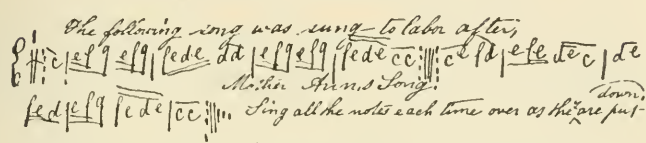 The following song was sung to labor after;
c|efg efg|fede dd|efg efg|fede cc:||||: ce fd|efe dec|de
Mother Ann's Song.
fed|efg fede|cc:|||: Sing all the notes each time over as they are put down;